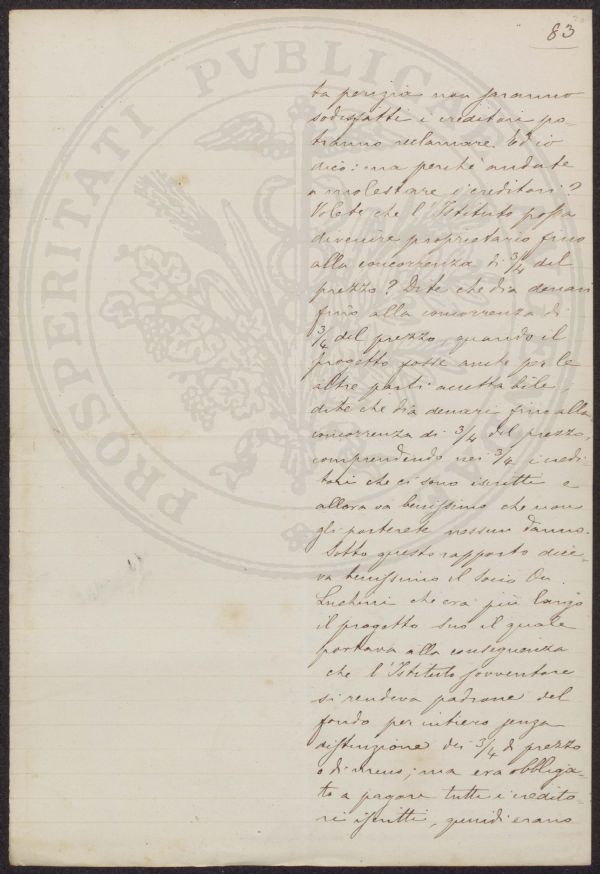 83
PROSPERITATI PVBLICAE
ta perizia non saranno
sodisfatti i creditori po-
tranno reclamare. Ed io
dico: ma perchè andate
a molestare i creditori?
Volete che l'Istituto possa
divenire proprietario fino
alla concorrenza di 3/4 del
prezzo? Dite che dia denari
fino alla concorrenza di
3/4 del prezzo, quando il
progetto fosse anche per le
altre parti accettabile,
dite che dia denari fino alla
concorrenza di 3/4 del prezzo,
comprendendo nei 3/4 i credi
tori che ci sono iscritti e
allora va benissimo che non
gli porterete nessun danno.
Sotto questo rapporto dice-
va benissimo il Socio On.
Luchini che era più largo
il progetto suo il quale
portava alla conseguenza
che l'Istituto sovventore
si rendeva padrone del
fondo per intiero senza
distinzione dei 3/4 di prezzo
o di meno; ma era obbliga-
to a pagare tutti i credito-
ri iscritti, quindi erano